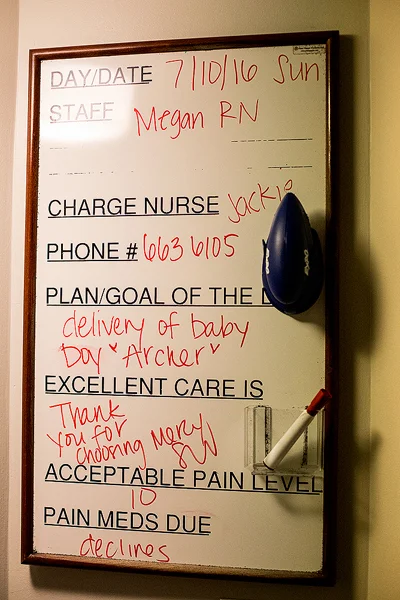 DAY/DATE 7/10/16 Sun
STAFF Megan RN
CHARGE NURSE Jackie
PHONE # 663 6105
PLAN/GOAL OF THE
delivery of baby
Boy "Archer"
EXCELLENT CARE IS
Thank
you for
choosing Mercy
ACCEPTABLE PAIN LEVEL
10
PAIN MEDS DUE
declines